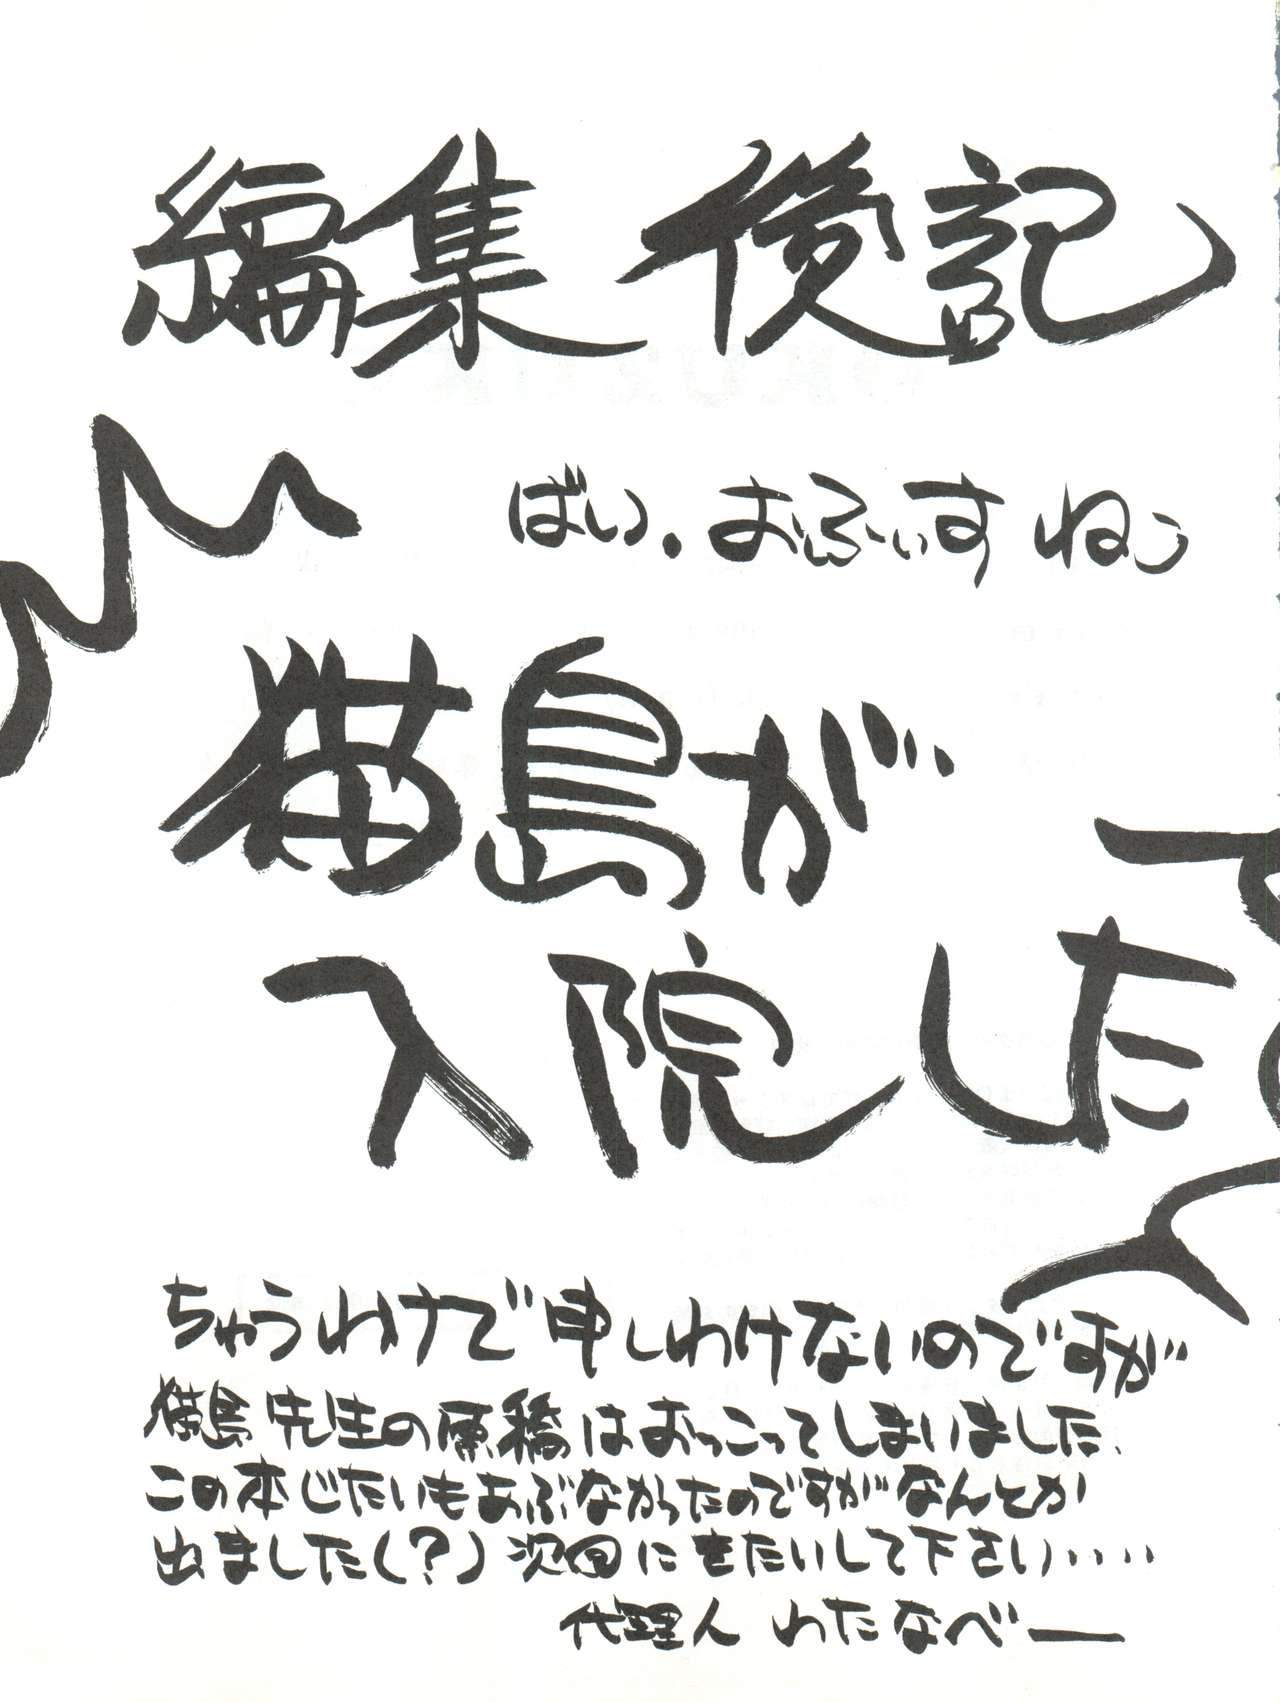 編集後記
ばい.おふぃすねこ
猫島が
入院した
ちゅうわけで申しわけないのですが
猫島先生の原稿はおっこってしまいました、
この本じたいもあぶなかったのですがなんとか
出ました(?)次回にきたいして下さい‥‥
代理人 わたなべー